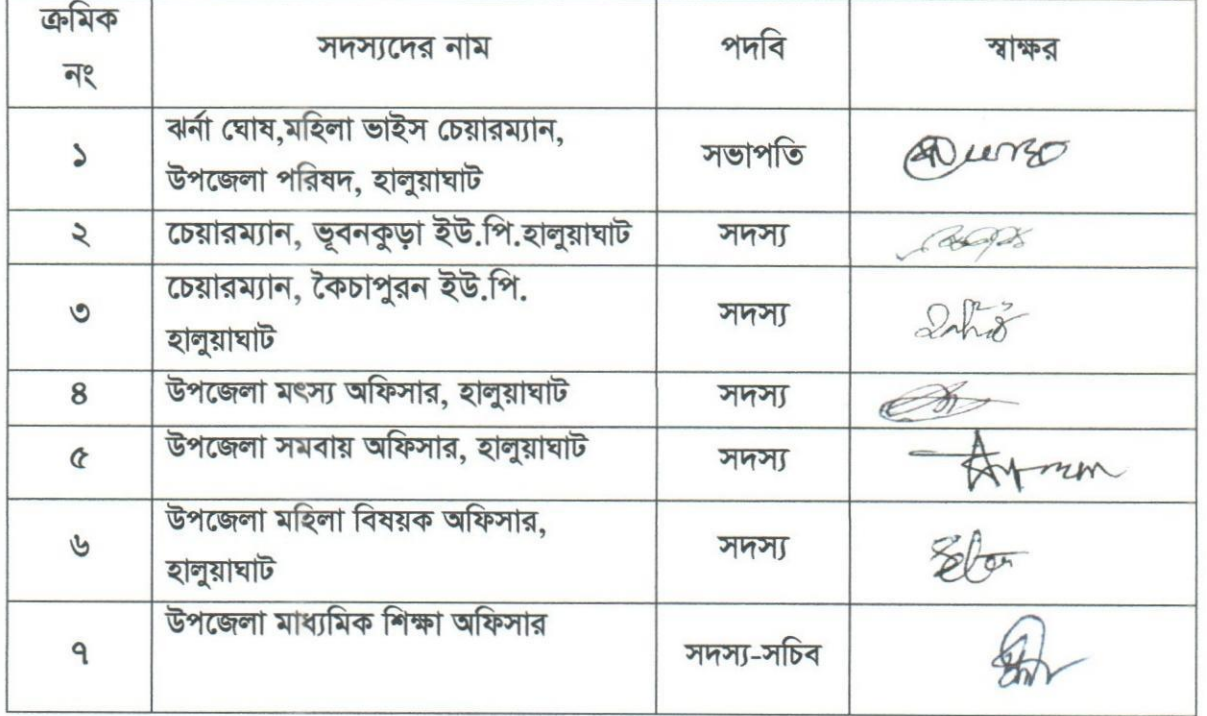 ক্রমিক
নং
সদস্যদের নাম
পদবি
স্বাক্ষর
১
ঝর্না ঘোষ,মহিলা ভাইস চেয়ারম্যান,
উপজেলা পরিষদ, হালুয়াঘাট
সভাপতি
২
চেয়ারম্যান, ভূবনকুড়া ইউ.পি.হালুয়াঘাট
সদস্য
৩
চেয়ারম্যান, কৈচাপুরন ইউ.পি.
হালুয়াঘাট
সদস্য
৪
উপজেলা মৎস্য অফিসার, হালুয়াঘাট
সদস্য
৫
উপজেলা সমবায় অফিসার, হালুয়াঘাট
সদস্য
৬
উপজেলা মহিলা বিষয়ক অফিসার,
হালুয়াঘাট
সদস্য
৭
উপজেলা মাধ্যমিক শিক্ষা অফিসার
সদস্য-সচিব